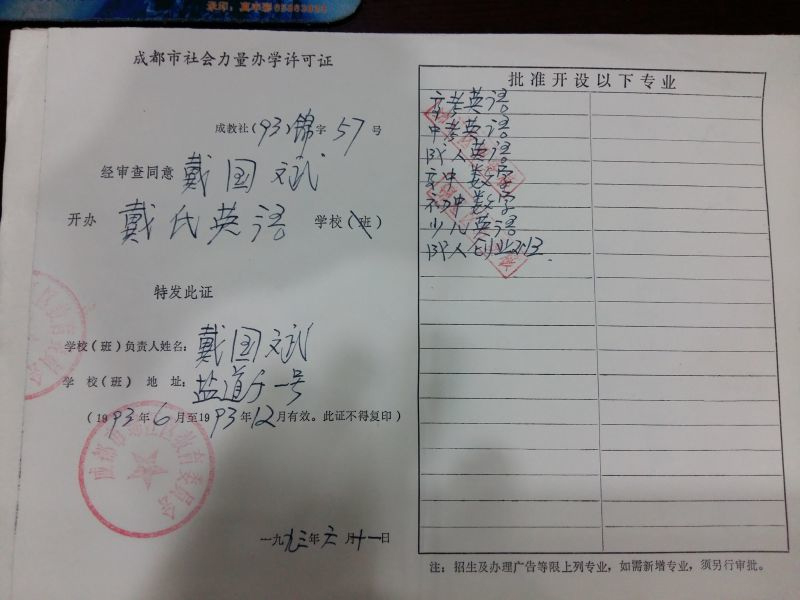 成都市社会力量办学许可证
成教社(93)锦字57号
经审查同意戴国斌
开办戴氏英语学校(班)
特发此证
学校(班)负责人姓名:戴国斌
学校(班)地址:盐道街一号
(1993年6月至1993年12月有效。此证不得复印)
一九九三年六月十一日
批准开设以下专业
高考英语
中考英语
成人英语
高中数学
初中数学
少儿英语
成人
注:招生及办理广告等限上列专业,如需新增专业,须另行审批。